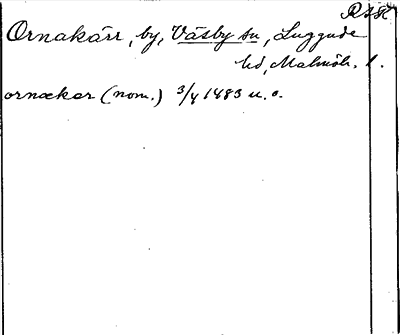 Ornakärr, by, Väsby sn, Luggude
hd, Malmöh. l.
ornækær (nom.) 3/4 1483 u. o.